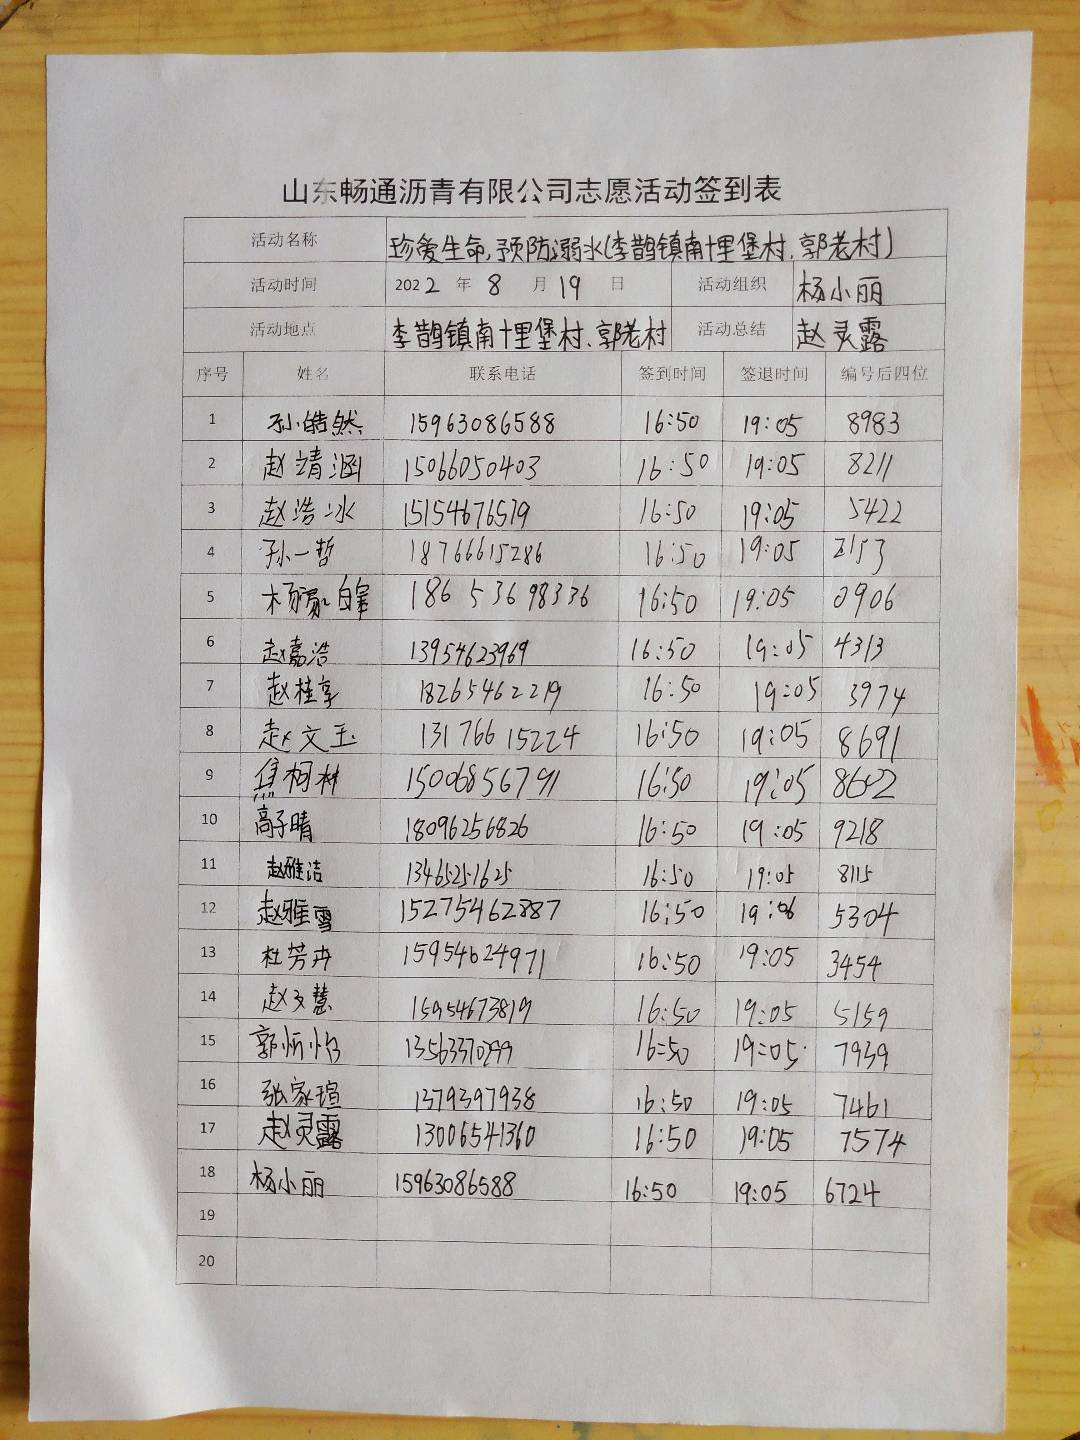 山东畅通沥青有限公司志愿活动签到表
活动名称 珍爱生命,预防溺水(李鹊镇南十里堡村、郭老村)
活动时间 2022 年 8 月 19 日 活动组织 杨小丽
活动地点 李鹊镇南十里堡村、郭老村 活动总结 赵灵露
序号 姓名 联系电话 签到时间 签退时间 编号后四位
1 孙皓然 15963086588 16:50 19:05 8983
2 赵靖涵 15066050403 16:50 19:05 8211
3 赵浩冰 15154676519 16:50 19:05 5422
4 孙一哲 18766615286 16:50 19:05 2153
5 杨 18653698336 16:50 19:05 0906
6 赵嘉浩 13954623969 16:50 19:05 4313
7 赵桂享 18265462219 16:50 19:05 3974
8 赵文玉 13176615224 16:50 19:05 8691
9 焦柯林 15006856791 16:50 19:05 8602
10 高子晴 18096256826 16:50 19:05 9218
11 赵雅洁 13465251625 16:50 19:05 8115
12 赵雅雪 15275462887 16:50 19:06 5304
13 杜芳卉 15954624971 16:50 19:05 3454
14 赵文慧 15954673819 16:50 19:05 5159
15 郭忻怡 13563370299 16:50 19:05 7939
16 张家瑄 1379397938 16:50 19:05 7461
17 赵灵露 13006541360 16:50 19:05 7574
18 杨小丽 15963086588 16:50 19:05 6724
19
20